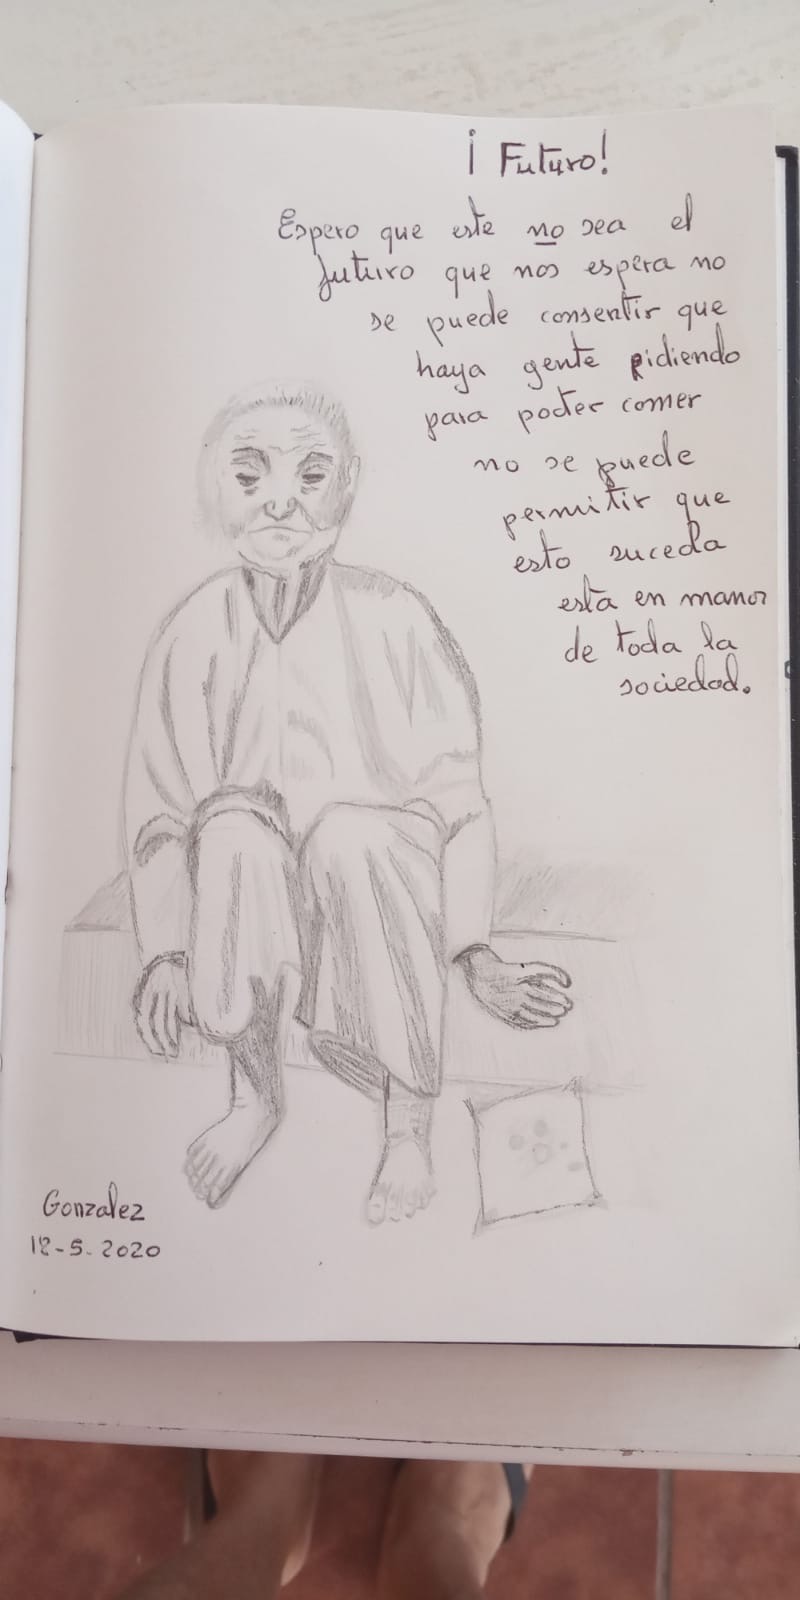 ¡Futuro!
Espero que este no sea el
futuro que nos espera no
se puede consentir que
haya gente pidiendo
para poder comer
no se puede
permitir que
esto suceda
esta en manos
de toda la
sociedad.
Gonzalez
12-5-2020